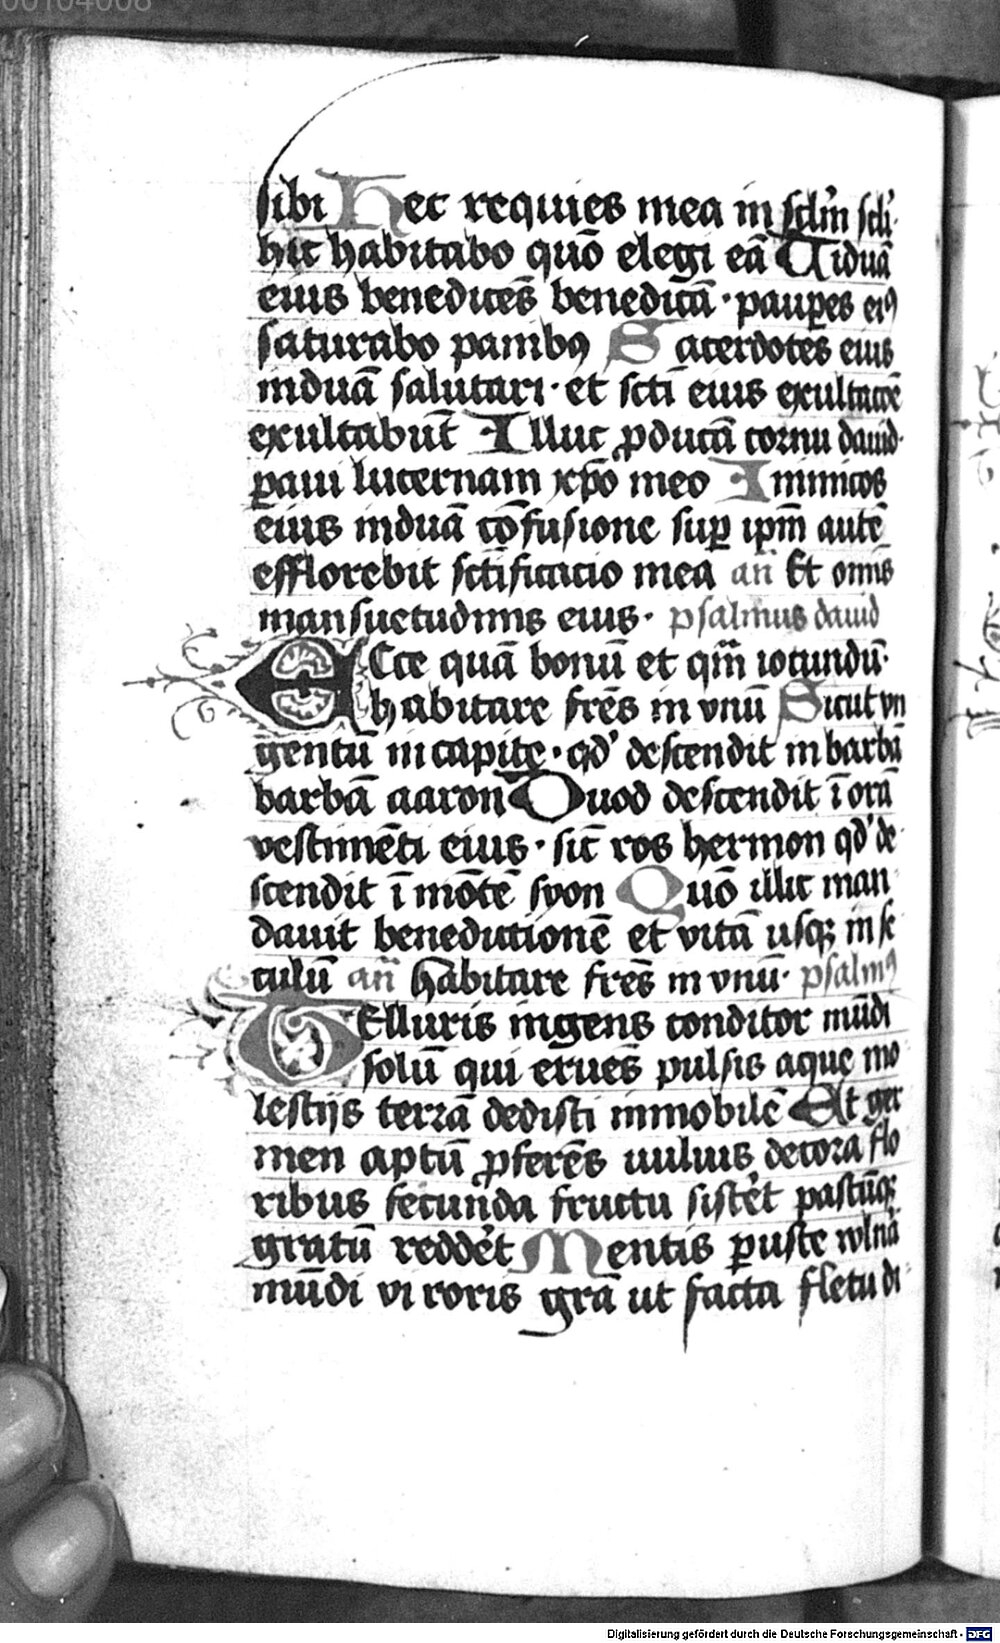 00104008
sibi Hec requies mea in sclm̄ scli·
hic habitabo quō elegi eā Uiduā
eius benedicēs benedicā· paupes eiꝰ
saturabo panibꝰ Sacerdotes eius
induā salutari· et scti eius exultacōe
exultabūt Illuc ꝓducā cornu dauid·
paui lucernam xp̄o meo Inimicos
eius induā cōfusione suꝑ ip̄m autē
efflorebit sctificacio mea an̄ Et om̄is
mansuetudinis eius· psalmus dauid
ECce quā bonū et qm̄ iocundū·
habitare fr̄es in vnū Sicut vn
gentū in capite· qd' descendit in barbā
barbā aaron Quod descendit ī orā
vestimēti eius· sic̄ ros hermon qd' de
scendit ī mōtē syon Quō illic man
dauit benedictionē et vitā usqꝫ in se
culū an̄ Habitare fr̄es in vnū· psalmꝰ
TElluris ingens conditor mūdi
solū qui eruēs pulsis aque mo
lestijs terrā dedisti immobilē Ut ger
men aptū ꝓferēs uuluis decora flo
ribus fecunda fructu sistēt pastūqꝫ
gratū reddēt Mentis ꝑuste wlnā
mūdi viroris grā ut facta fletu di
Digitalisierung gefördert durch die Deutsche Forschungsgemeinschaft - DFG